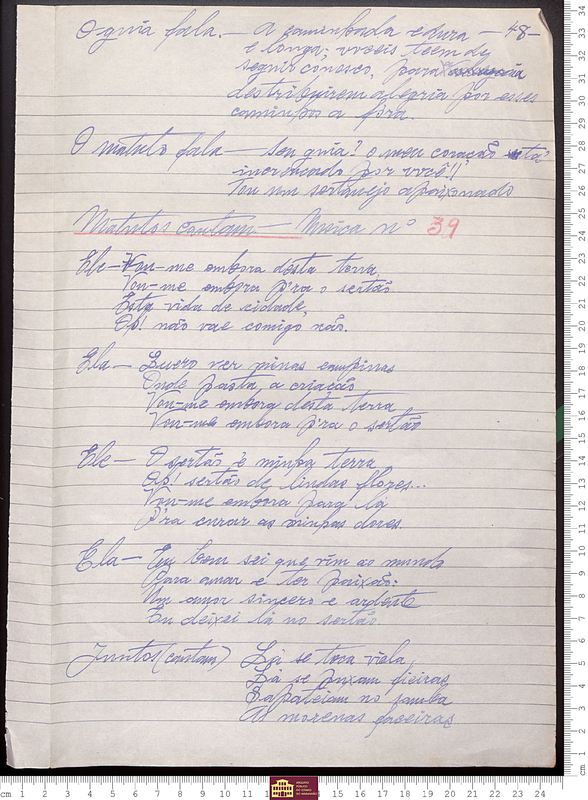 O guia fala. — A caminhada e dura — -48-
e longa; vvoceis teem de
seguir conosco, para
destribuirem alegria por esses
caminhos a fora.
O matuto fala — Seu guia! o meu coração está
incrocado por você!!
Sou um sertanejo apaixonado
Matutos cantam — Musica nº 39
Ele — Vou-me embora desta terra,
Vou-me embora p'ra o sertão
Esta vida de cidade,
Oh! não vae comigo não.
Ela — Quero ver minas campinas
Onde pasta a criação
Vou-me embora desta terra
Vou-me embora p'ra o sertão
Ele — O sertão é minha terra
Oh! sertão de lindas flores..
Vou-me embora para lá
P'ra curar as minhas dores.
Ela — Eu bem sei que vim ao mundo
Para amar e ter paixão:
Um amor sincero e ardente
Eu deixei lá no sertão.
Juntos (cantam) Lá se toca viola,
Lá se puxam fieiras
Sapateiam no samba
As morenas faceiras